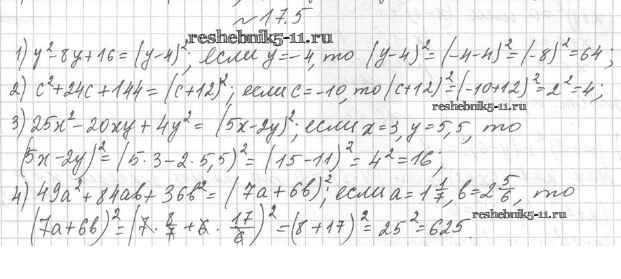 №17.5
reshebnik5-11.ru
1) y²-8y+16=(y-4)²; если y=-4, то (y-4)²=(-4-4)²=(-8)²=64;
2) c²+24c+144=(c+12)²; если c=-10, то (c+12)²=(-10+12)²=2²=4;
reshebnik5-11.ru
3) 25x²-20xy+4y²=(5x-2y)²; если x=3, y=5,5, то
(5x-2y)²=(5·3-2·5,5)²=(15-11)²=4²=16;
4) 49a²+84ab+36b²=(7a+6b)²; если a=1 1/7, b=2 5/6, то
reshebnik5-11.ru
(7a+6b)²=(7·8/7+6·17/6)²=(8+17)²=25²=625.